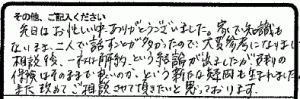 その他、ご記入ください
先日はお忙しい中ありがとうございました。家で知識も
ないまま、二人で話すことが多かったので大変参考になりました。
相談後、一社は解約、という結論が出ましたが、百木の
保険はそのままで良いのか、という新たな疑問も生まれました。
また改めてご相談させて頂きたいと思っております。